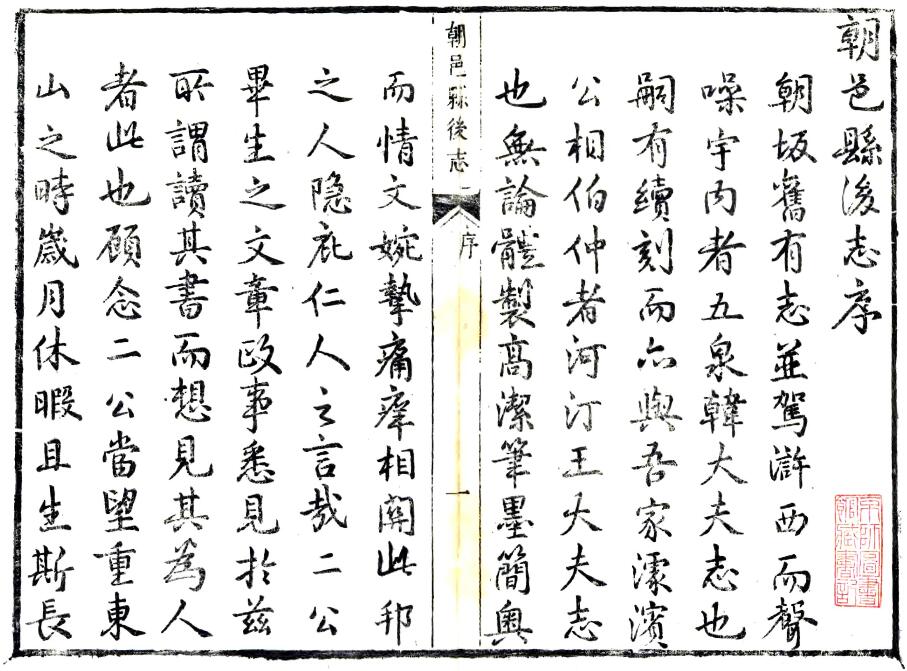 朝邑縣後志序
朝坂舊有志並駕滸西而聲
噪宇内者五泉韓大夫志也
嗣有續刻而亦與吾家澽濱
公相伯仲者河汀王大夫志
也無論體製高潔筆墨簡奥
朝邑縣後志 序 一
而情文婉摯痛痒相關此邦
之人隐庇仁人之言哉二公
畢生之文章政事悉見於兹
所謂讀其書而想見其為人
者此也顧念二公當望重東
山之時歲月休暇且生斯長
京師圖書
館藏書記